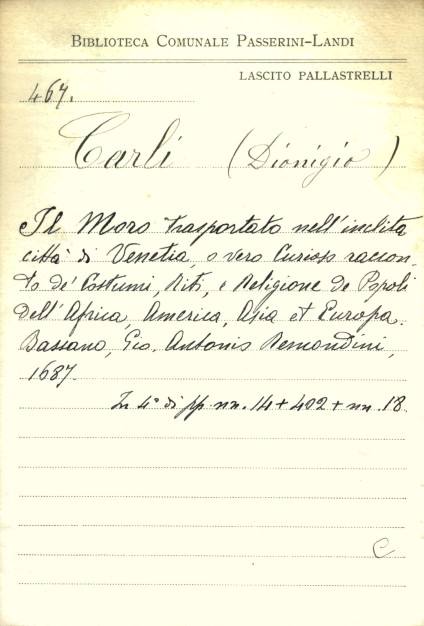 BIBLIOTECA COMUNALE PASSERINI-LANDI
LASCITO PALLASTRELLI
467.
Carli (Dionigio)
Il Moro trasportato nell'inclita
città di Venetia, o vero Curioso raccon
to de' Costumi, Riti, e Religione de Popoli
dell'Africa, America, Asia et Europa.
Bassano, Gio. Antonio Remondini,
1687.
In 4° di pp. nn. 14 + 402 + nn. 18.
C